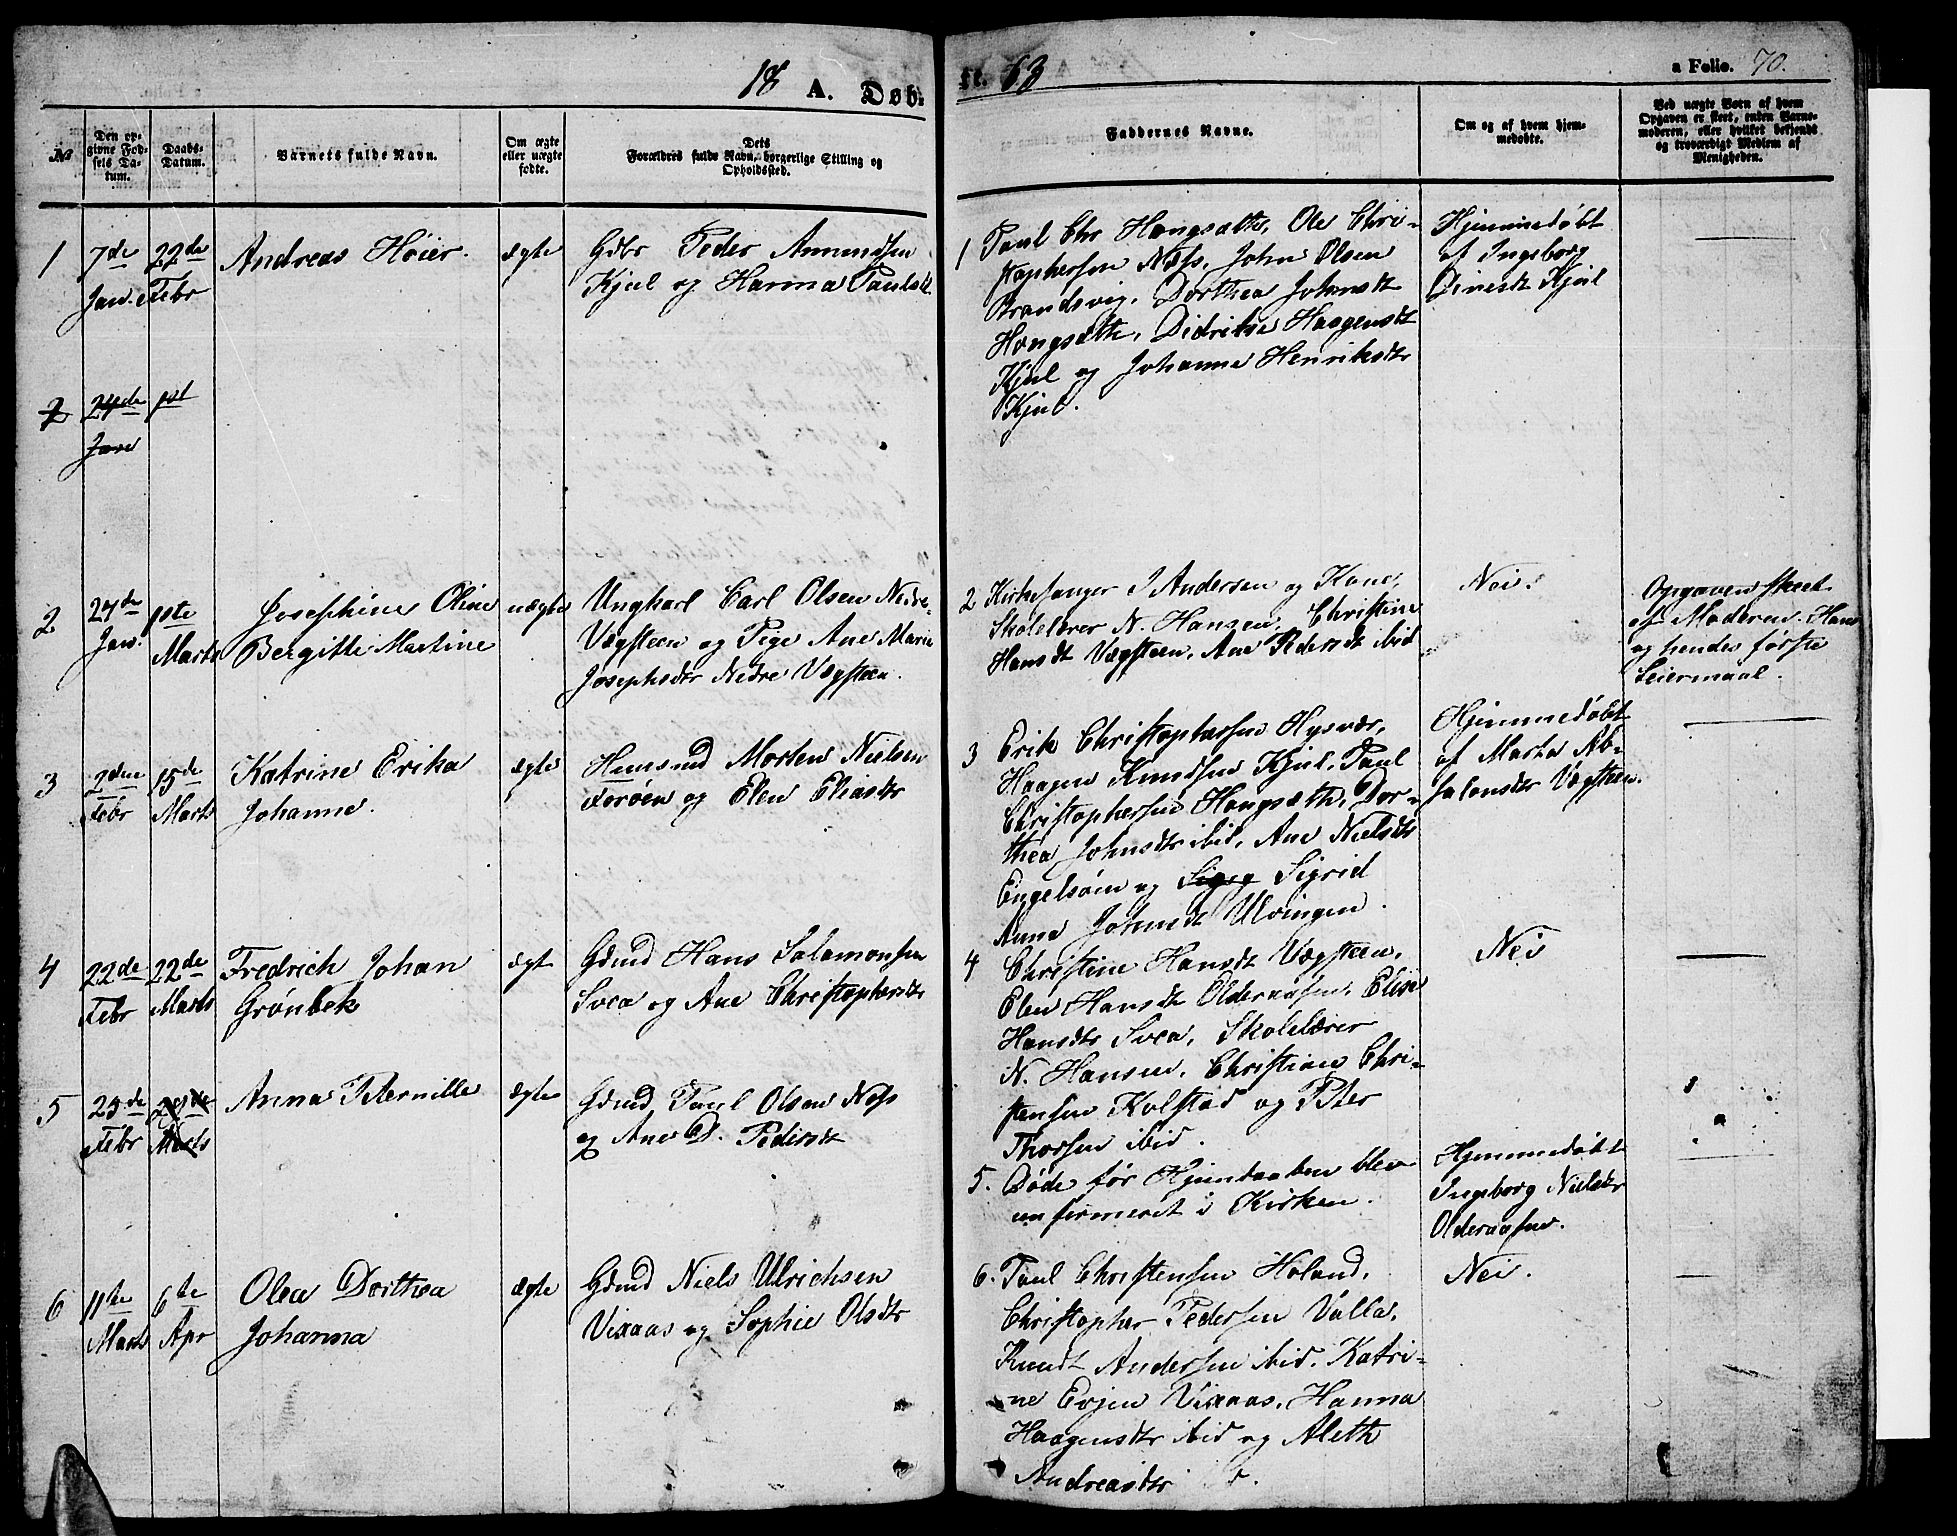 18 A. Døb-
№
Den op-
givne Fød-
sels Da-
tum.
Daabs-
Datum.
Barnets fulde Navn.
Om ægte
eller uægte
fødte.
Dets
Forældres fulde Navn, borgerlige Stilling og
Opholdssted.
1
7de
Jan.
22de
Febr
Andreas Høier.
ægte
Gdbr Peder Amundsen
Kjul og Hanna Paulsdt.
2
24de
Jan
1st
2
27de
Jan.
1ste
Marts
Josephine Oline
Bergitte Martine
uægte
Ungkarl Carl Olsen Nedre
Vægsteen og Pige Ane Marie
Josephsdtr Nedre Vægsteen.
3
2den
Febr
15de
Marts
Katrine Erika
Johanne.
ægte
Huusmd Morten Nielsen
Forøen og Elen Eliasdtr
4
22de
Febr
22de
Marts
Fredrich Johan
Grønbek
ægt
Gdmd Hans Salamonsen
Svea og Ane Christophersdtr
5
25de
Febr
29de
Marts
Anna Peternille
ægte
Gdmd Paul Olsen Næss
og Ane D. Pedersdt
6
11te
Marts
6te
Apr
Olea Dorthea
Johanna
ægte
Gdmd Niels Ulrichsen
Vixaas og Sophie Olsdtr
te. 63
a Folio. 70.
Faddernes Navne.
Om og af hvem hjem-
medøbte.
Ved uægte Børn af hvem
Opgaven er skeet, enten Barne-
moderen, eller hvilket bekjendt
og troværdigt Medlem af
Menigheden.
1 Paul Chr Hongsæth, Ole Chri-
stophersen Næss, John Olsen
Strandsvig, Dorthea Johnsdt
Hongsæth, Didrikke Haagensdt
Kjul og Johanna Henriksdtr
Kjul.
Hjemmedøbt
af Ingeborg
Dinesdt Kjul
2 Kirkesanger J Andersen og Kone,
Skolelærer N. Hansen, Christine
Hansdt Vægsteen, Ane Pedersdt ibid
Nei.
Opgaven skeet
af Moderen. Hans
og hendes første
Leiermaal.
3 Erik Christophersen Hysvær,
Haagen Knudsen Kjul, Paul
Christophersen Hongsæth, Dor-
thea Johnsdtr ibid, Ane Nielsdtr
Engelsøen og Sigrid
Anna Johnsdt Ulvingen.
Hjemmedøbt
af Marta Ab-
salonsdtr Vægsteen.
4 Christine Hansdt Vægsteen,
Elen Hansdt Olderaasen, Elise
Hansdtr Svea, Skolelærer
N. Hansen, Christian Chri-
stensen Kolstad og Peter
Thorsen ibid.
Nei
5. Døde før Hjemdaaben blev
confirmeret i Kirken.
Hjemmedøbt
Ingeborg Nielsdtr
Olderaasen.
6. Paul Christensen Høland,
Christopher Pedersen Valla,
Knudt Andersen ibid, Katri-
ne Evjen Vixaas, Hanna
Haagensdtr ibid og Aleth
Andreasdtr
Nei.